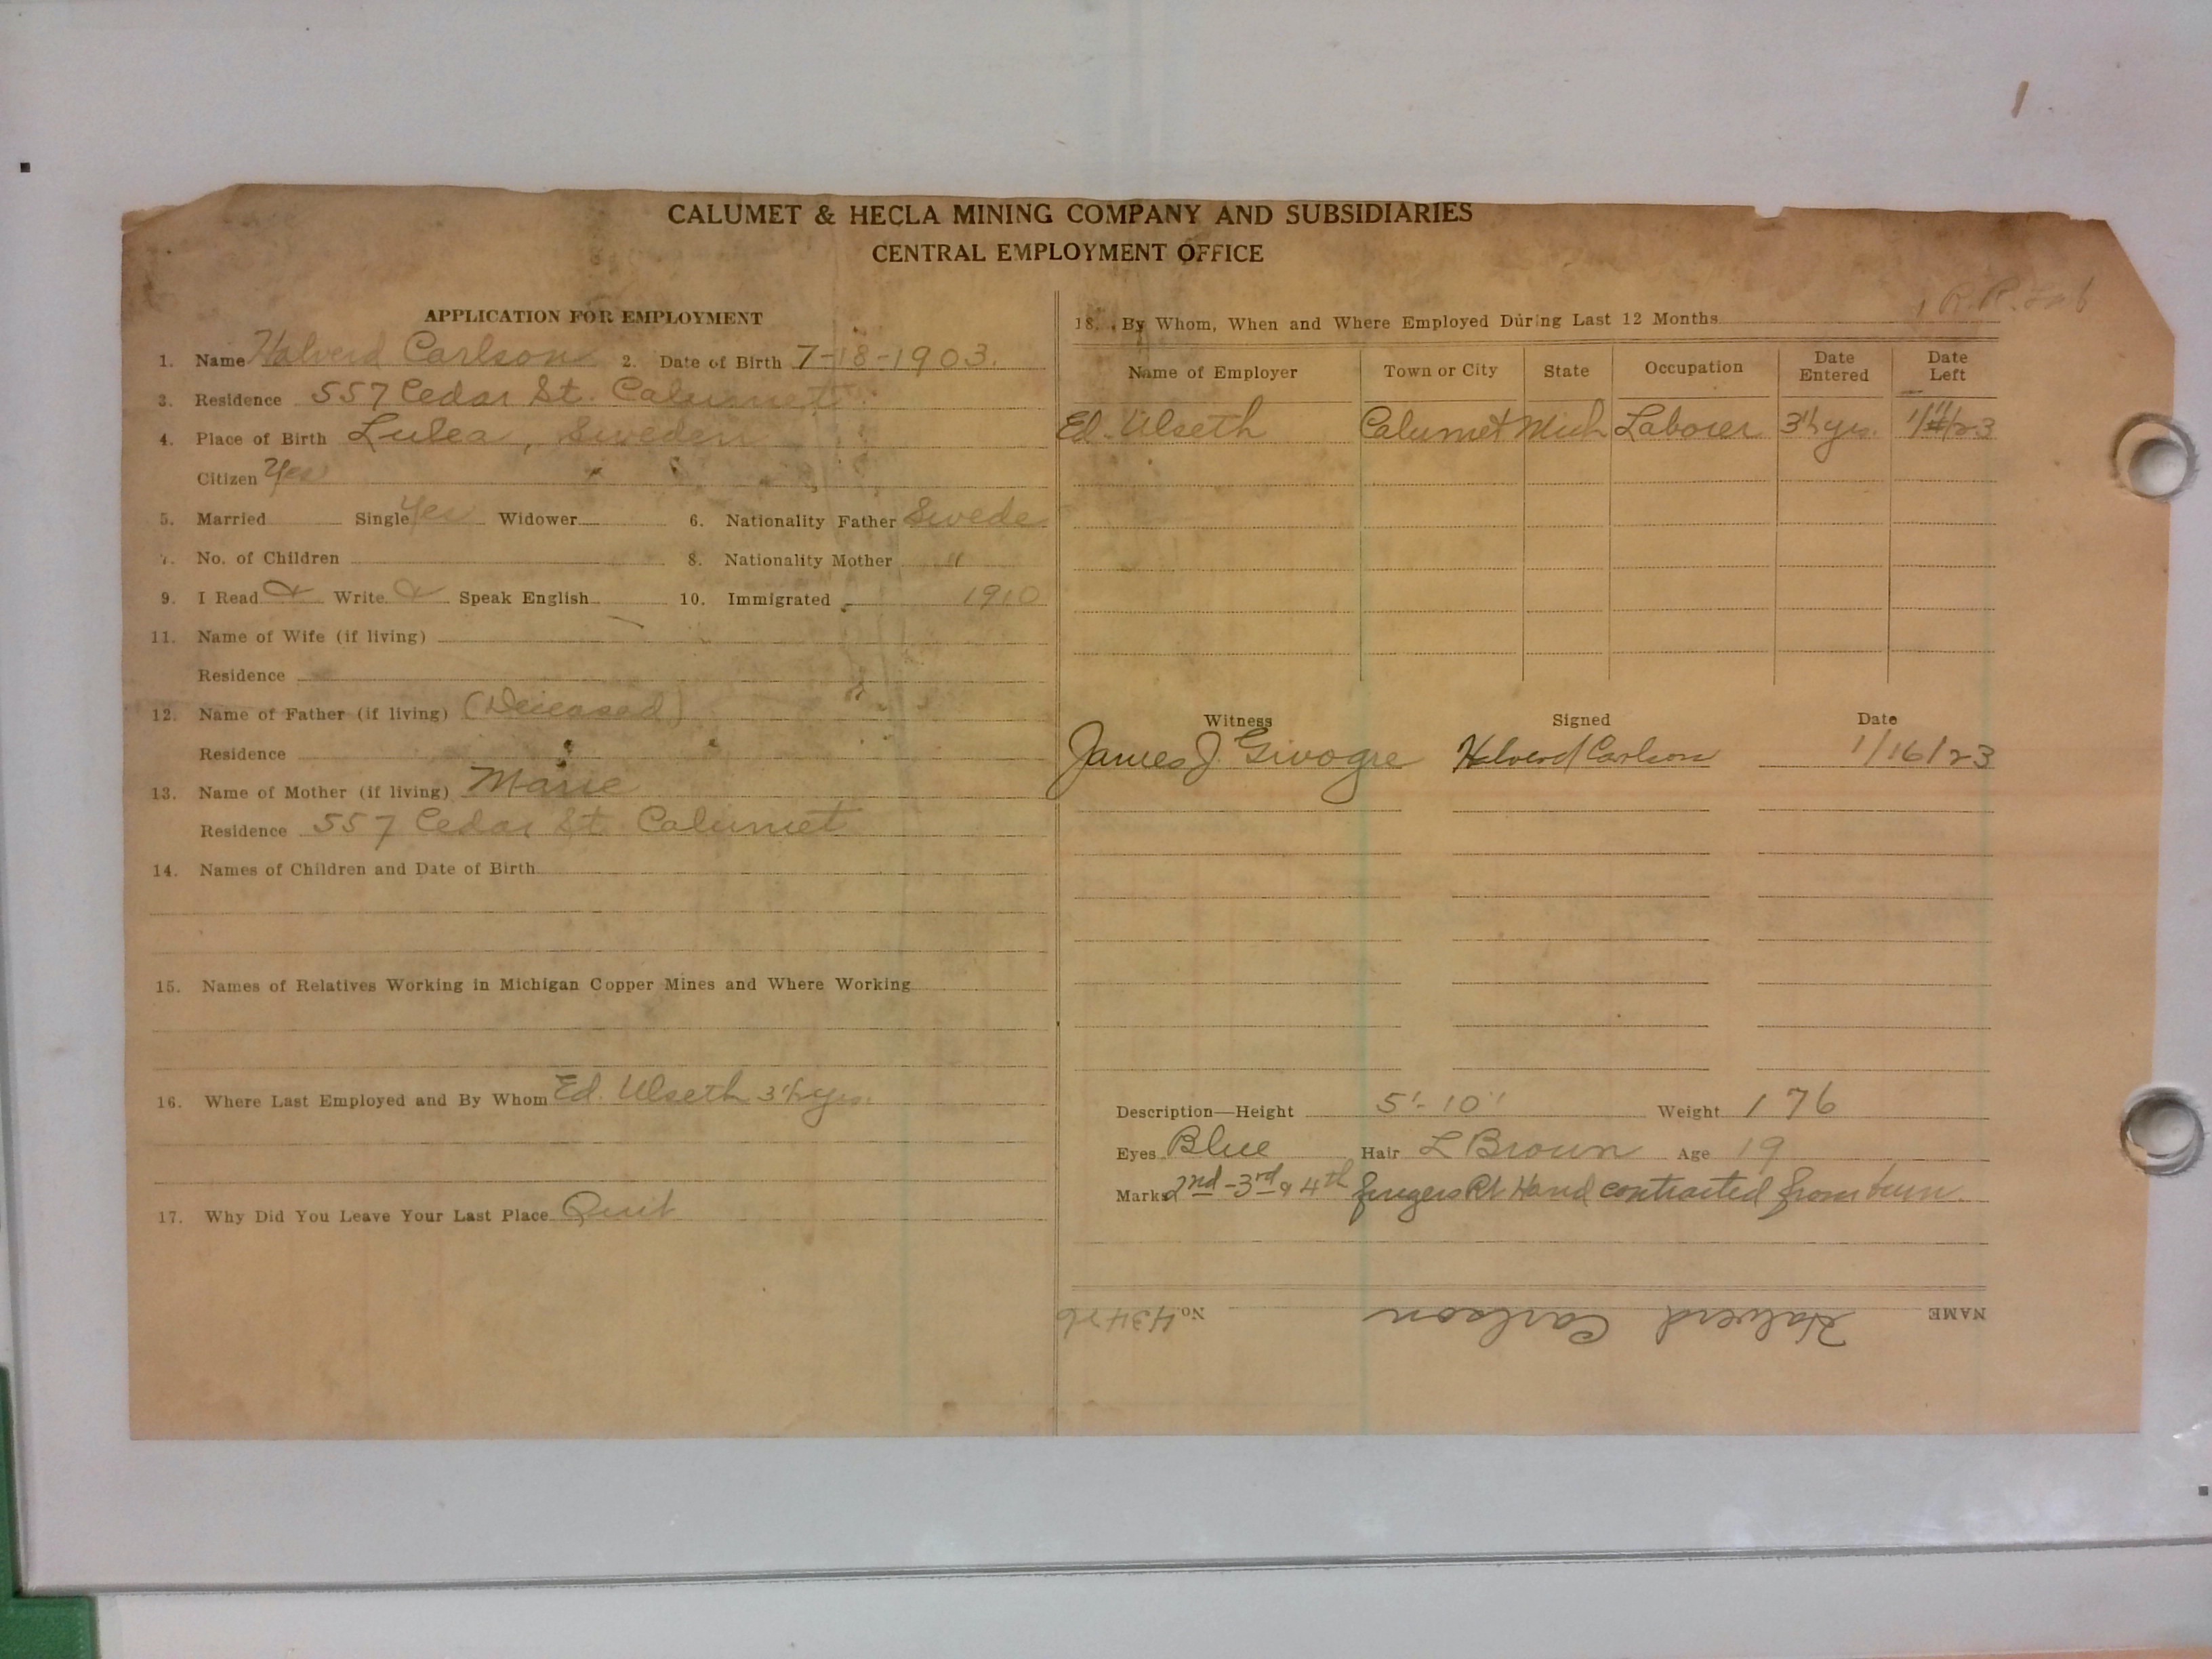 CALUMET & HECLA MINING COMPANY AND SUBSIDIARIES
CENTRAL EMPLOYMENT OFFICE
APPLICATION FOR EMPLOYMENT
1. Name Halverd Carlson 2. Date of Birth 7-18-1903.
3. Residence 557 Cedar St. Calumet
4. Place of Birth Lulea, Sweden
Citizen Yes
5. Married Single Yes Widower 6. Nationality Father Swede
7. No. of Children 8. Nationality Mother "
9. I Read & Write & Speak English 10. Immigrated 1910
11. Name of Wife (if living)
Residence
12. Name of Father (if living) (Deceased)
Residence
13. Name of Mother (if living) Marie
Residence 557 Cedar St. Calumet
14. Names of Children and Date of Birth
15. Names of Relatives Working in Michigan Copper Mines and Where Working
16. Where Last Employed and By Whom Ed. Ulseth 3½ yrs.
17. Why Did You Leave Your Last Place Quit
R.R.
18. By Whom, When and Where Employed During Last 12 Months
Name of Employer Town or City State Occupation Date Entered Date Left
Ed. Ulseth Calumet Mich Laborer 3½ yrs.
Witness Signed Date
James J. Givogre Halverd Carlson 1/16/23
Description—Height 5'-10" Weight 176
Eyes Blue Hair L Brown Age 19
Marks 2nd-3rd & 4th fingers Rt Hand contracted from burn.
NAME Halverd Carlson No. 43426